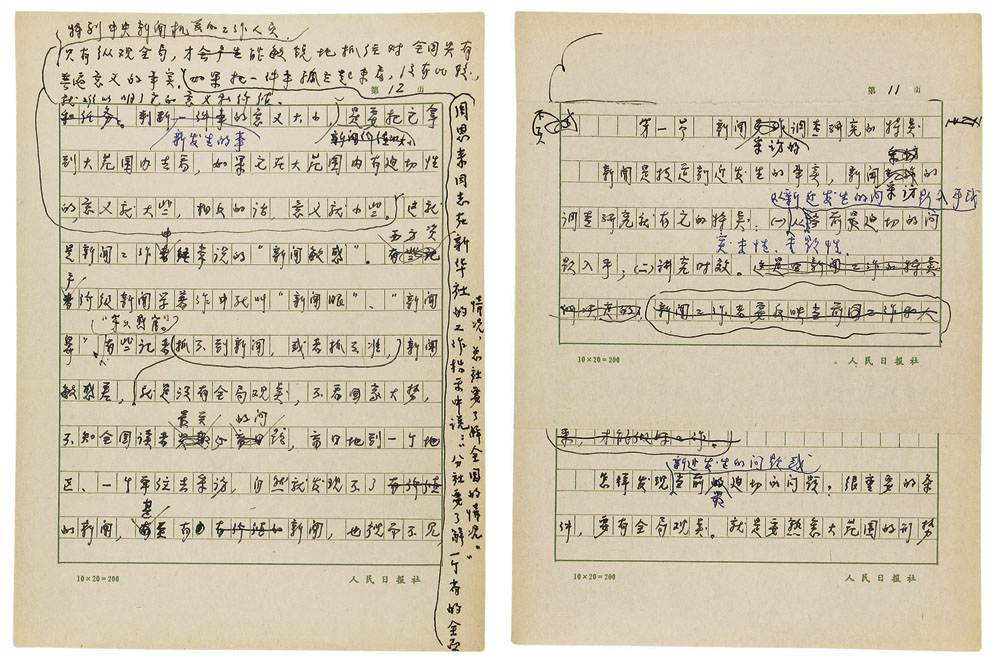 特别中央新闻机关的工作人员
只有纵观全局，才会产生能敏锐地抓住对全国具有
普遍意义的事实。（如果把一件事孤立起来看，没有比较，
就难以明了它的意义和价值。
第 12 页
和任务。判断一件事的意义大小，是要把它拿
新发生的事 新闻价值的大小
到大范围内去看，如果它在大范围内有迫切性
的，意义就大些，相反的话，意义就小些。这就
是新闻工作中经常说的"新闻敏感"。有些
西方资
产
阶级新闻学著作中就叫"新闻眼"、"新闻
鼻"
有些记者抓不到新闻，或者抓不准，新闻
敏感差，就是没有全局观点，不看国家大势，
最关 的问
不知全国读者 题，盲目地到一个地
区、一个单位去采访，自然就发现不了
的新闻，有 新闻，也视而不见
周恩来同志在新华社的工作指示中说："分社要了解一个省的全面
情况，总社要了解全国的情况。"
10×20=200 人民日报社
第 11 页
第一节 新闻 调查研究的特点
采访的
新闻是报道新近发生的事实，新闻 的
采访
从新近发生的问题入手或
调查研究就有它的特点：（一）从当前最迫切的问
真实性，
题入手；（二）讲究时效。这是由新闻工作的特点
所决定的。新闻工作者要反映当前国
10×20=200 人民日报社
来，才能做好工作。
新近发生的问题或
怎样发现当前的迫切的问题？很重要的条
最
件，要有全局观点。就是要熟悉大范围的形势
10×20=200 人民日报社